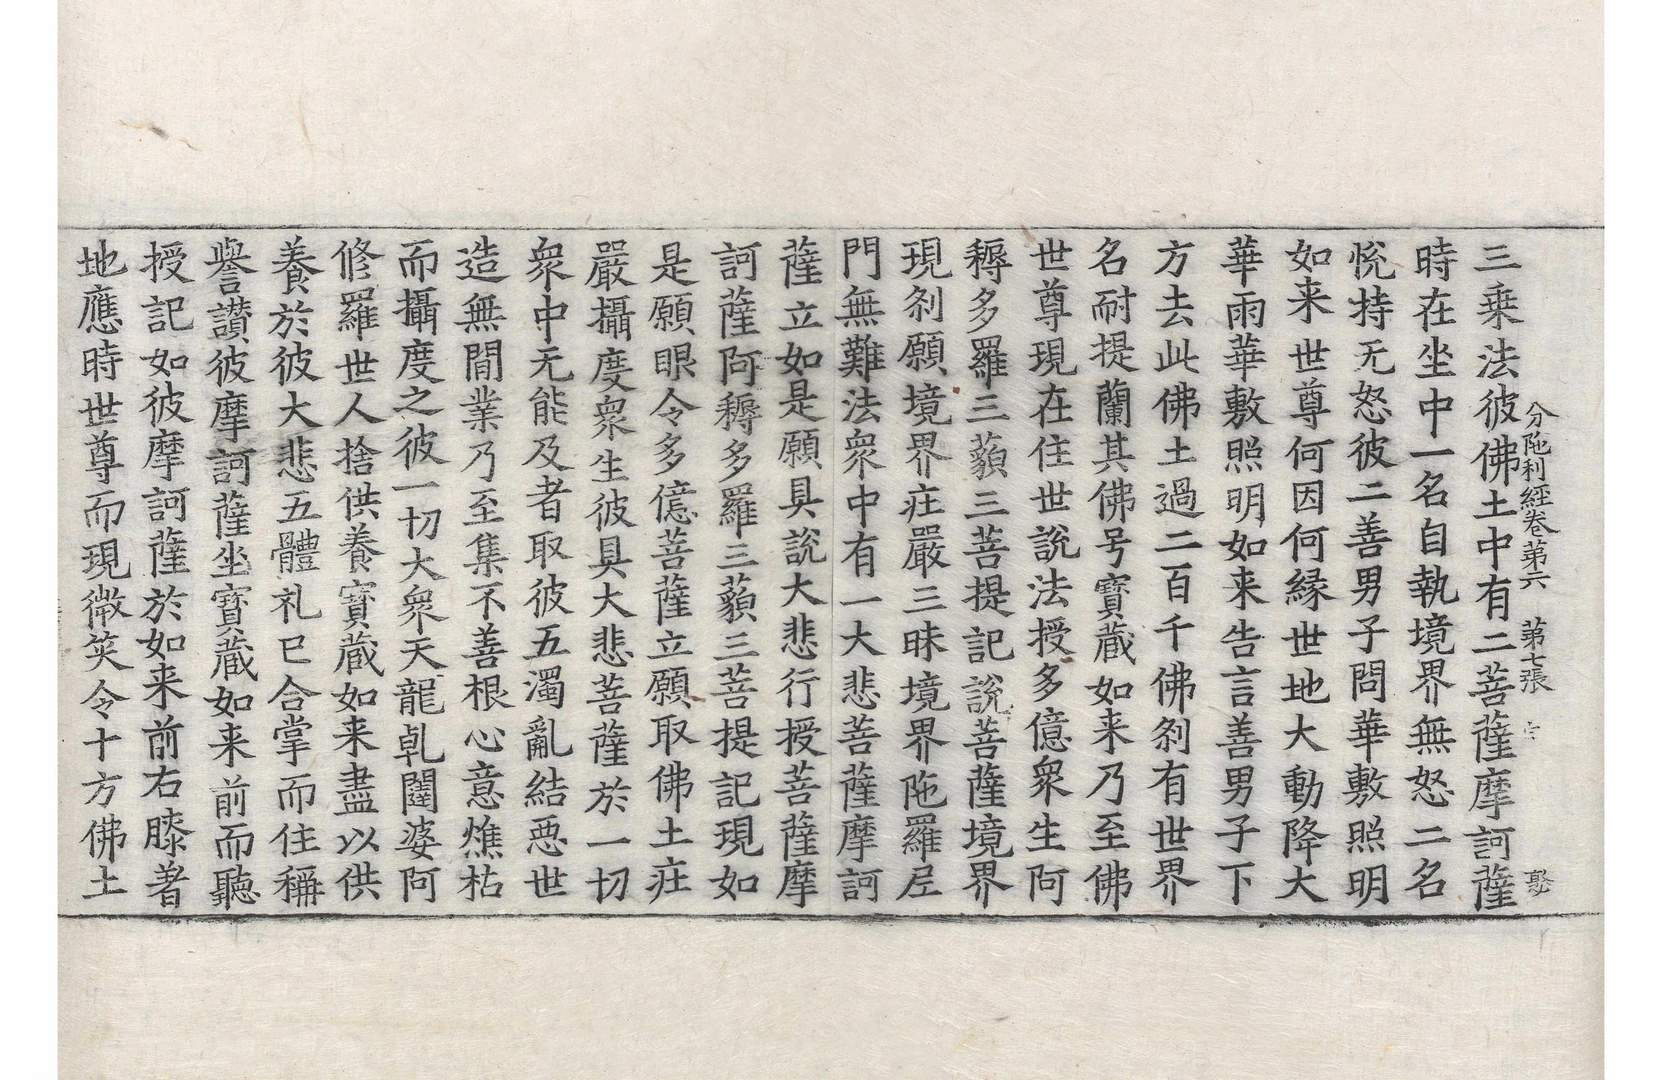 分陁利經卷第六 第七張
三乗法彼佛土中有二菩薩摩訶薩
時在坐中一名自執境界無怒二名
恱持无怒彼二善男子問華敷照明
如来世尊何因何縁世地大動降大
華雨華敷照明如来告言善男子下
方去此佛土過二百千佛剎有世界
名耐提蘭其佛号寶蔵如来乃至佛
世尊現在住世說法授多億衆生阿
耨多羅三藐三菩提記說菩薩境界
現剎願境界疘嚴三昧境界陁羅尼
門無難法衆中有一大悲菩薩摩訶
薩立如是願具說大悲行授菩薩摩
訶薩阿耨多羅三藐三菩提記現如
是願眼令多億菩薩立願取佛土疘
嚴攝度衆生彼具大悲菩薩於一切
衆中无能及者取彼五濁亂結惡世
造無間業乃至集不善根心意燋枯
而攝度之彼一切大衆天龍乹闥婆阿
修羅世人捨供養寶蔵如来盡以供
養於彼大悲五體礼已合掌而住稱
譽讚彼摩訶薩坐寶蔵如来前而聽
授記如彼摩訶薩於如来前右膝著
地應時世尊而現微笑令十方佛土